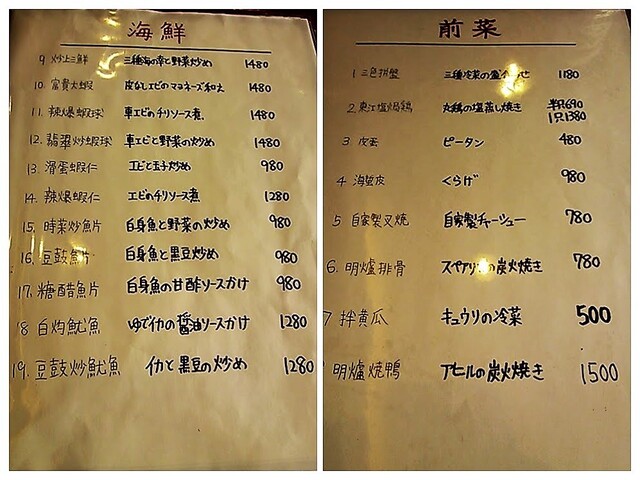 海鮮
9 炒三鮮 三種海の幸と野菜炒め 1480
10. 富貴大蝦 皮なしエビのマヨネーズ和え 1480
11. 辣爆蝦球 車エビのチリソース煮 1480
12. 翡翠炒蝦球 車エビと野菜の炒め 1480
13. 滑蛋蝦仁 エビと玉子炒め 980
14. 辣爆蝦仁 エビのチリソース煮 1280
15. 時菜炒魚片 白身魚と野菜の炒め 980
16. 豆鼓魚片 白身魚と黒豆炒め 980
17. 糖醋魚片 白身魚の甘酢ソースかけ 980
18 白灼魷魚 ゆでイカの醤油ソースかけ 1280
19. 豆鼓炒魷魚 イカと黒豆の炒め 1280
前菜
1 三色拼盤 三種冷菜の盛合わせ 1180
2. 東江塩焗鶏 丸鶏の塩蒸し焼き 半只690
1只1380
3 皮蛋 ピータン 480
4 海蜇皮 くらげ 980
5 自家製叉焼 自家製チャーシュー 780
6. 明爐排骨 スペアリブの炭火焼き 780
7 拌黄瓜 キュウリの冷菜 500
明爐焼鴨 アヒルの炭火焼き 1500